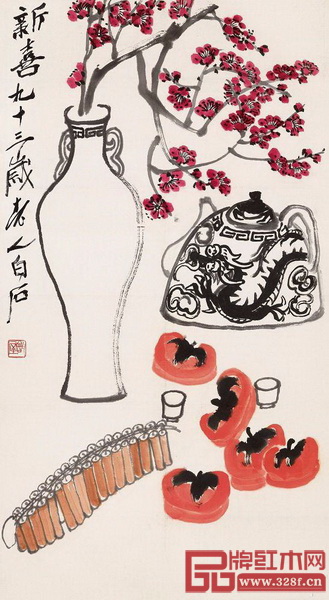 新喜九十三歲老人白石
品牌红木网
www.328f.cn